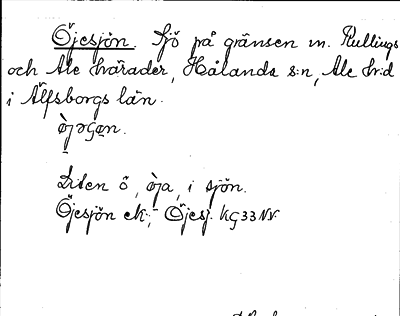 Öjesjön. Sjö på gränsen m. Kullings
och Ale härader, Hålanda s:n, Ale h:d
i Älfsborgs län.
Liten ö, òja, i sjön.
Öjesjön ek; Öjesj. kG33NV